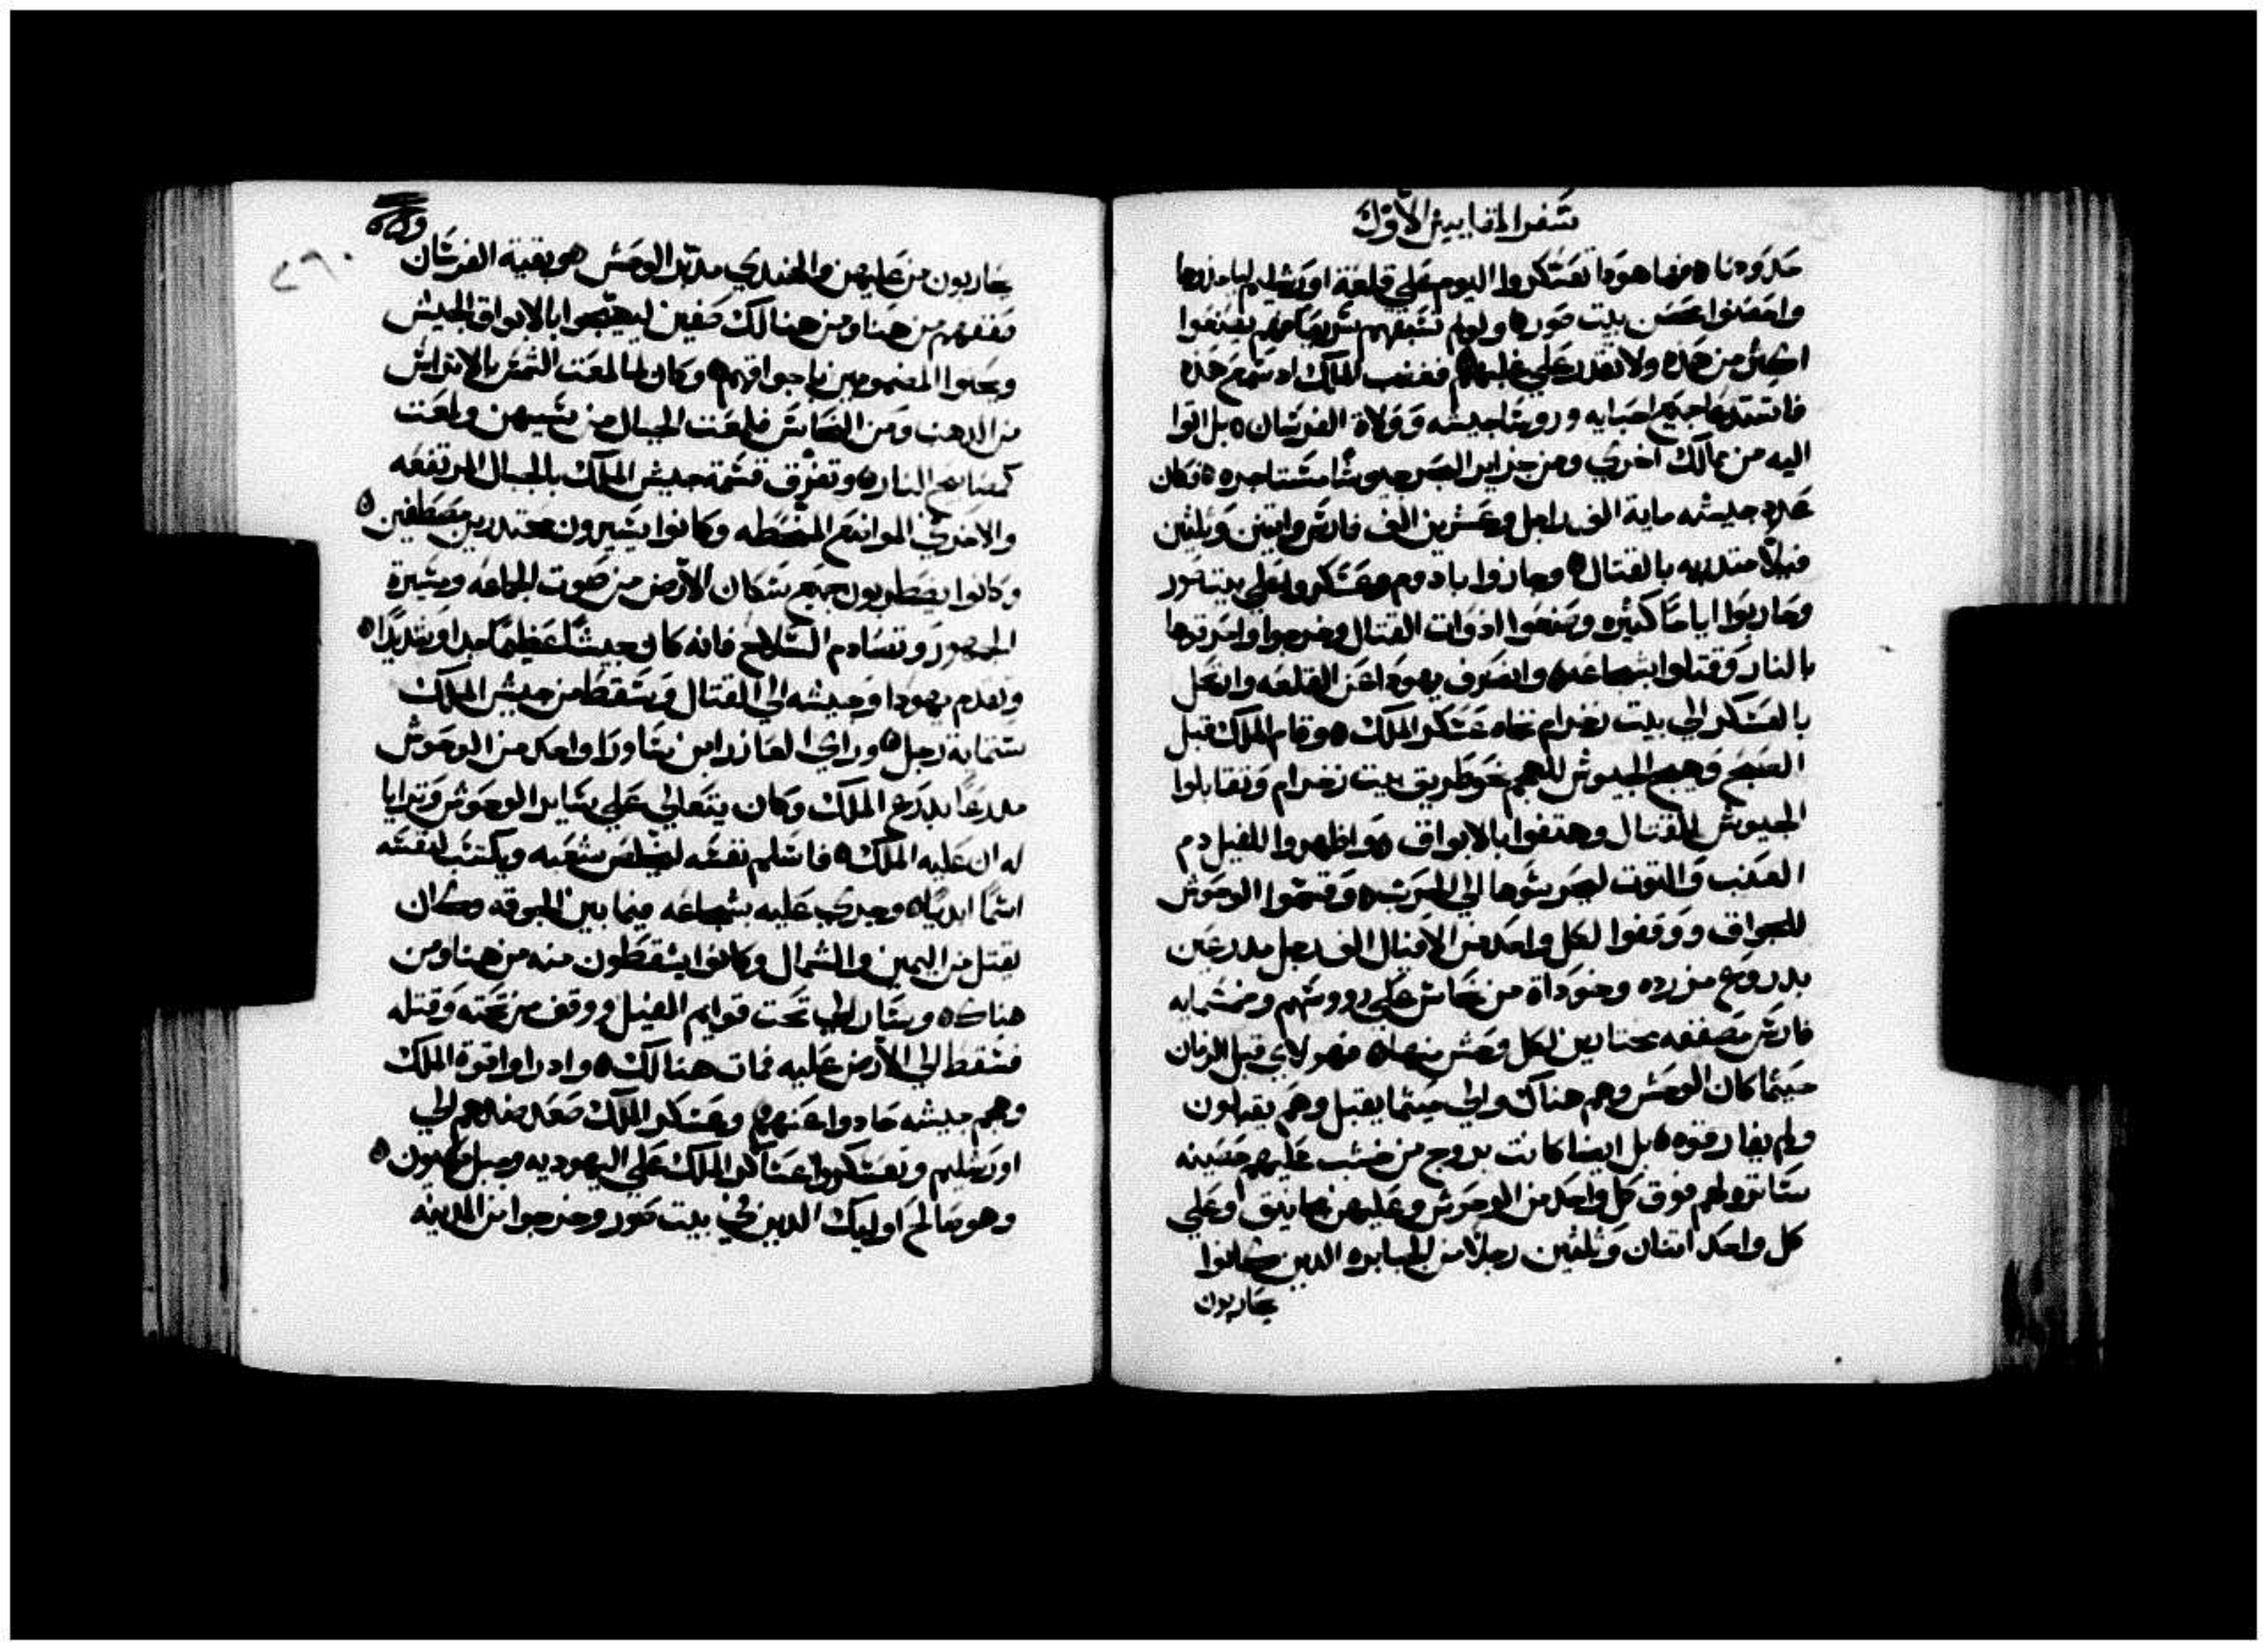 سفر المقابيين الاول
حدودنا ه فها هوذا تعسكروا اليوم علي قلعة اورشليم لياخذوها
واحصنوا حصن بيت صور ه ولو لم تسبقهم سريعا فهم يصنعوا
اكثر من هذه ولا تقدر علي غلبهم ه فغضب الملك اد سمع هذه
فاستدعا جميع احبايه وروسا جيشه وولاة الفرسان ه بل اتوا
اليه من ممالك اخري ومن جزاير البحر جيوشا مستاجره ه فكان
عدد جيشه ماية الف راجل وعشرين الف فارس واتنين وثلثين
فيلا متدربه بالقتال ه وجازوا بادوم وعسكروا علي بيت صور
وحاربوا اياما كثيره وصنعوا ادوات القتال وخرجوا واحرقوها
بالنار وقتلوا بشجاعه ه وانصرف يهودا عن القلعه وانتقل
بالعسكر الي بيت زخرام تجاه عسكر الملك ه وقام الملك قبل
الصبح وهيج الجيوش للهجم نحو طريق بيت زخرام وتقابلوا
الجيوش للقتال وهتفوا بالابواق ه واظهروا للفيل دم
العنب والتوت ليحريشوها الي الحرب ه وقسموا الوحوش
للجواق ووقفوا لكل واحد من الافيال الف رجل مدرعين
بدروع من زرده وخوداة من نحاس علي رووسهم وخمسمايه
فارس مصففه مختارين لكل وحش منها ه فهولاي قبل الزمان
حيثما كان الوحش وهم هناك والي حيثما يقبل وهم يقبلون
ولم يفارقوه ه بل ايضا كانت بروج من خشب عليهم حصينه
ساتره لهم فوق كل واحد من الوحوش وعليهن مجانيق وعلي
كل واحد اتنان وثلثين رجلا من الجبابره الدين كانوا
يحاربون
يحاربون من عليهن والهندي مدبر الوحش ه وبقية الفرسان
صففهم من هنا ومن هنالك صفين ليهيجوا بالابواق الجيش
ويحثوا المضمومين باجواقهم ه وكان لما لمعت الشمس بالاتراس
من الدهب ومن النحاس فلمعت الجبال من شبههن ولمعت
كمصابيح النار ه وتفرق قسمة جيش الملك بالجبال المرتفعه
والاخري المواضع المنحطه وكانوا يسيرون محتدرين مصطفين ه
وكانوا يضطربون جميع سكان الارض من صوت الجماعه ومسيرة
الجمهور وتصادم السلاح فانه كان جيشا عظيما جدا وشديدا ه
وتقدم يهودا وجيشه الي القتال وسقط من جيش الملك
ستماية رجل ه وراي العازر ابن ساورا واحد من الوحوش
مدرعا بدرع الملك وكان يتعالي علي ساير الوحوش وترايا
له ان عليه الملك ه فاسلم نفسه ليخلص شعبه ويكتسب لنفسه
اسما ابديا ه وجري عليه بشجاعه فيما بين الجوقه وكان
يقتل من اليمين والشمال وكانوا يسقطون منه من هنا ومن
هناك ه وسار الي تحت قوايم الفيل ووقف من تحته وقتله
فسقط الي الارض عليه فمات هنالك ه واد راوا قوة الملك
وهجم جيشه حادوا عنهم ه وعسكر الملك صعد ضدهم الي
اورشليم وتعسكروا عساكر الملك علي اليهوديه وجبل صهيون ه
وهو صالح اوليك الدين في بيت صور وخرجوا من المدينه